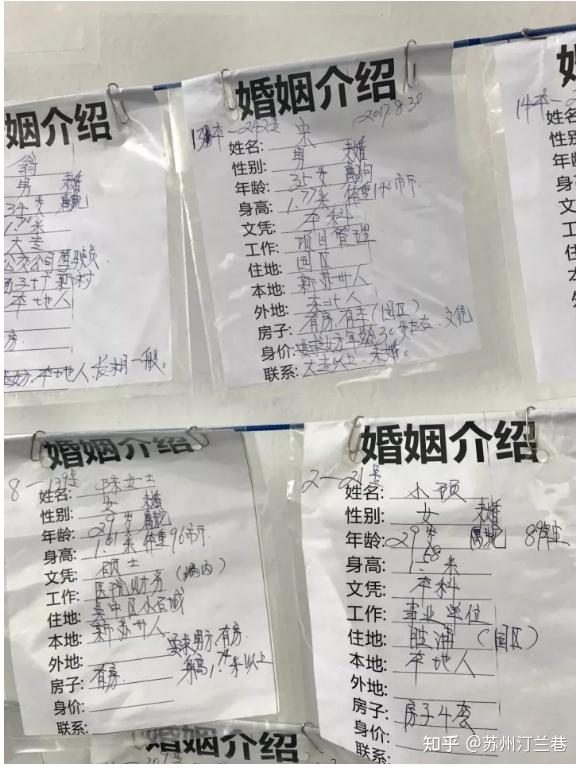 婚姻介绍
男 未婚
大专
公交公司驾驶员
新村
本地人
房
本地人 发相一般。
婚姻介绍
2017.8.30
姓名: 宋
性别: 男 未婚
年龄: 35岁 属狗
身高: 1.77米 体重141市斤
文凭: 本科
工作: 项目管理
住地: 园区
本地: 新苏州人
外地:
房子: 有房,有车(园区)
身价: 要求女方年龄30岁左右、文凭
联系: 大专以上 未婚。
婚姻介绍
8-139号
姓名: 陈女士
性别: 女 未婚
年龄: 29岁 属蛇
身高: 1.61米 体重96市斤
文凭: 硕士
工作: 医院财务(编内)
住地: 吴中区小石城
本地: 新苏州人
外地: 要求男方有房
房子: 有房 身高1.74米以上
身价:
联系:
婚姻介绍
2-21号
姓名: 小顾
性别: 女 未婚
年龄: 29岁 属蛇 89年生
身高: 1.68米
文凭: 本科
工作: 事业单位
住地: 胜浦(园区)
本地: 本地人
外地:
房子: 房子4套
身价:
联系:
姓名
性别
年龄
身高
文凭
婚姻介绍
知乎 @苏州汀兰巷